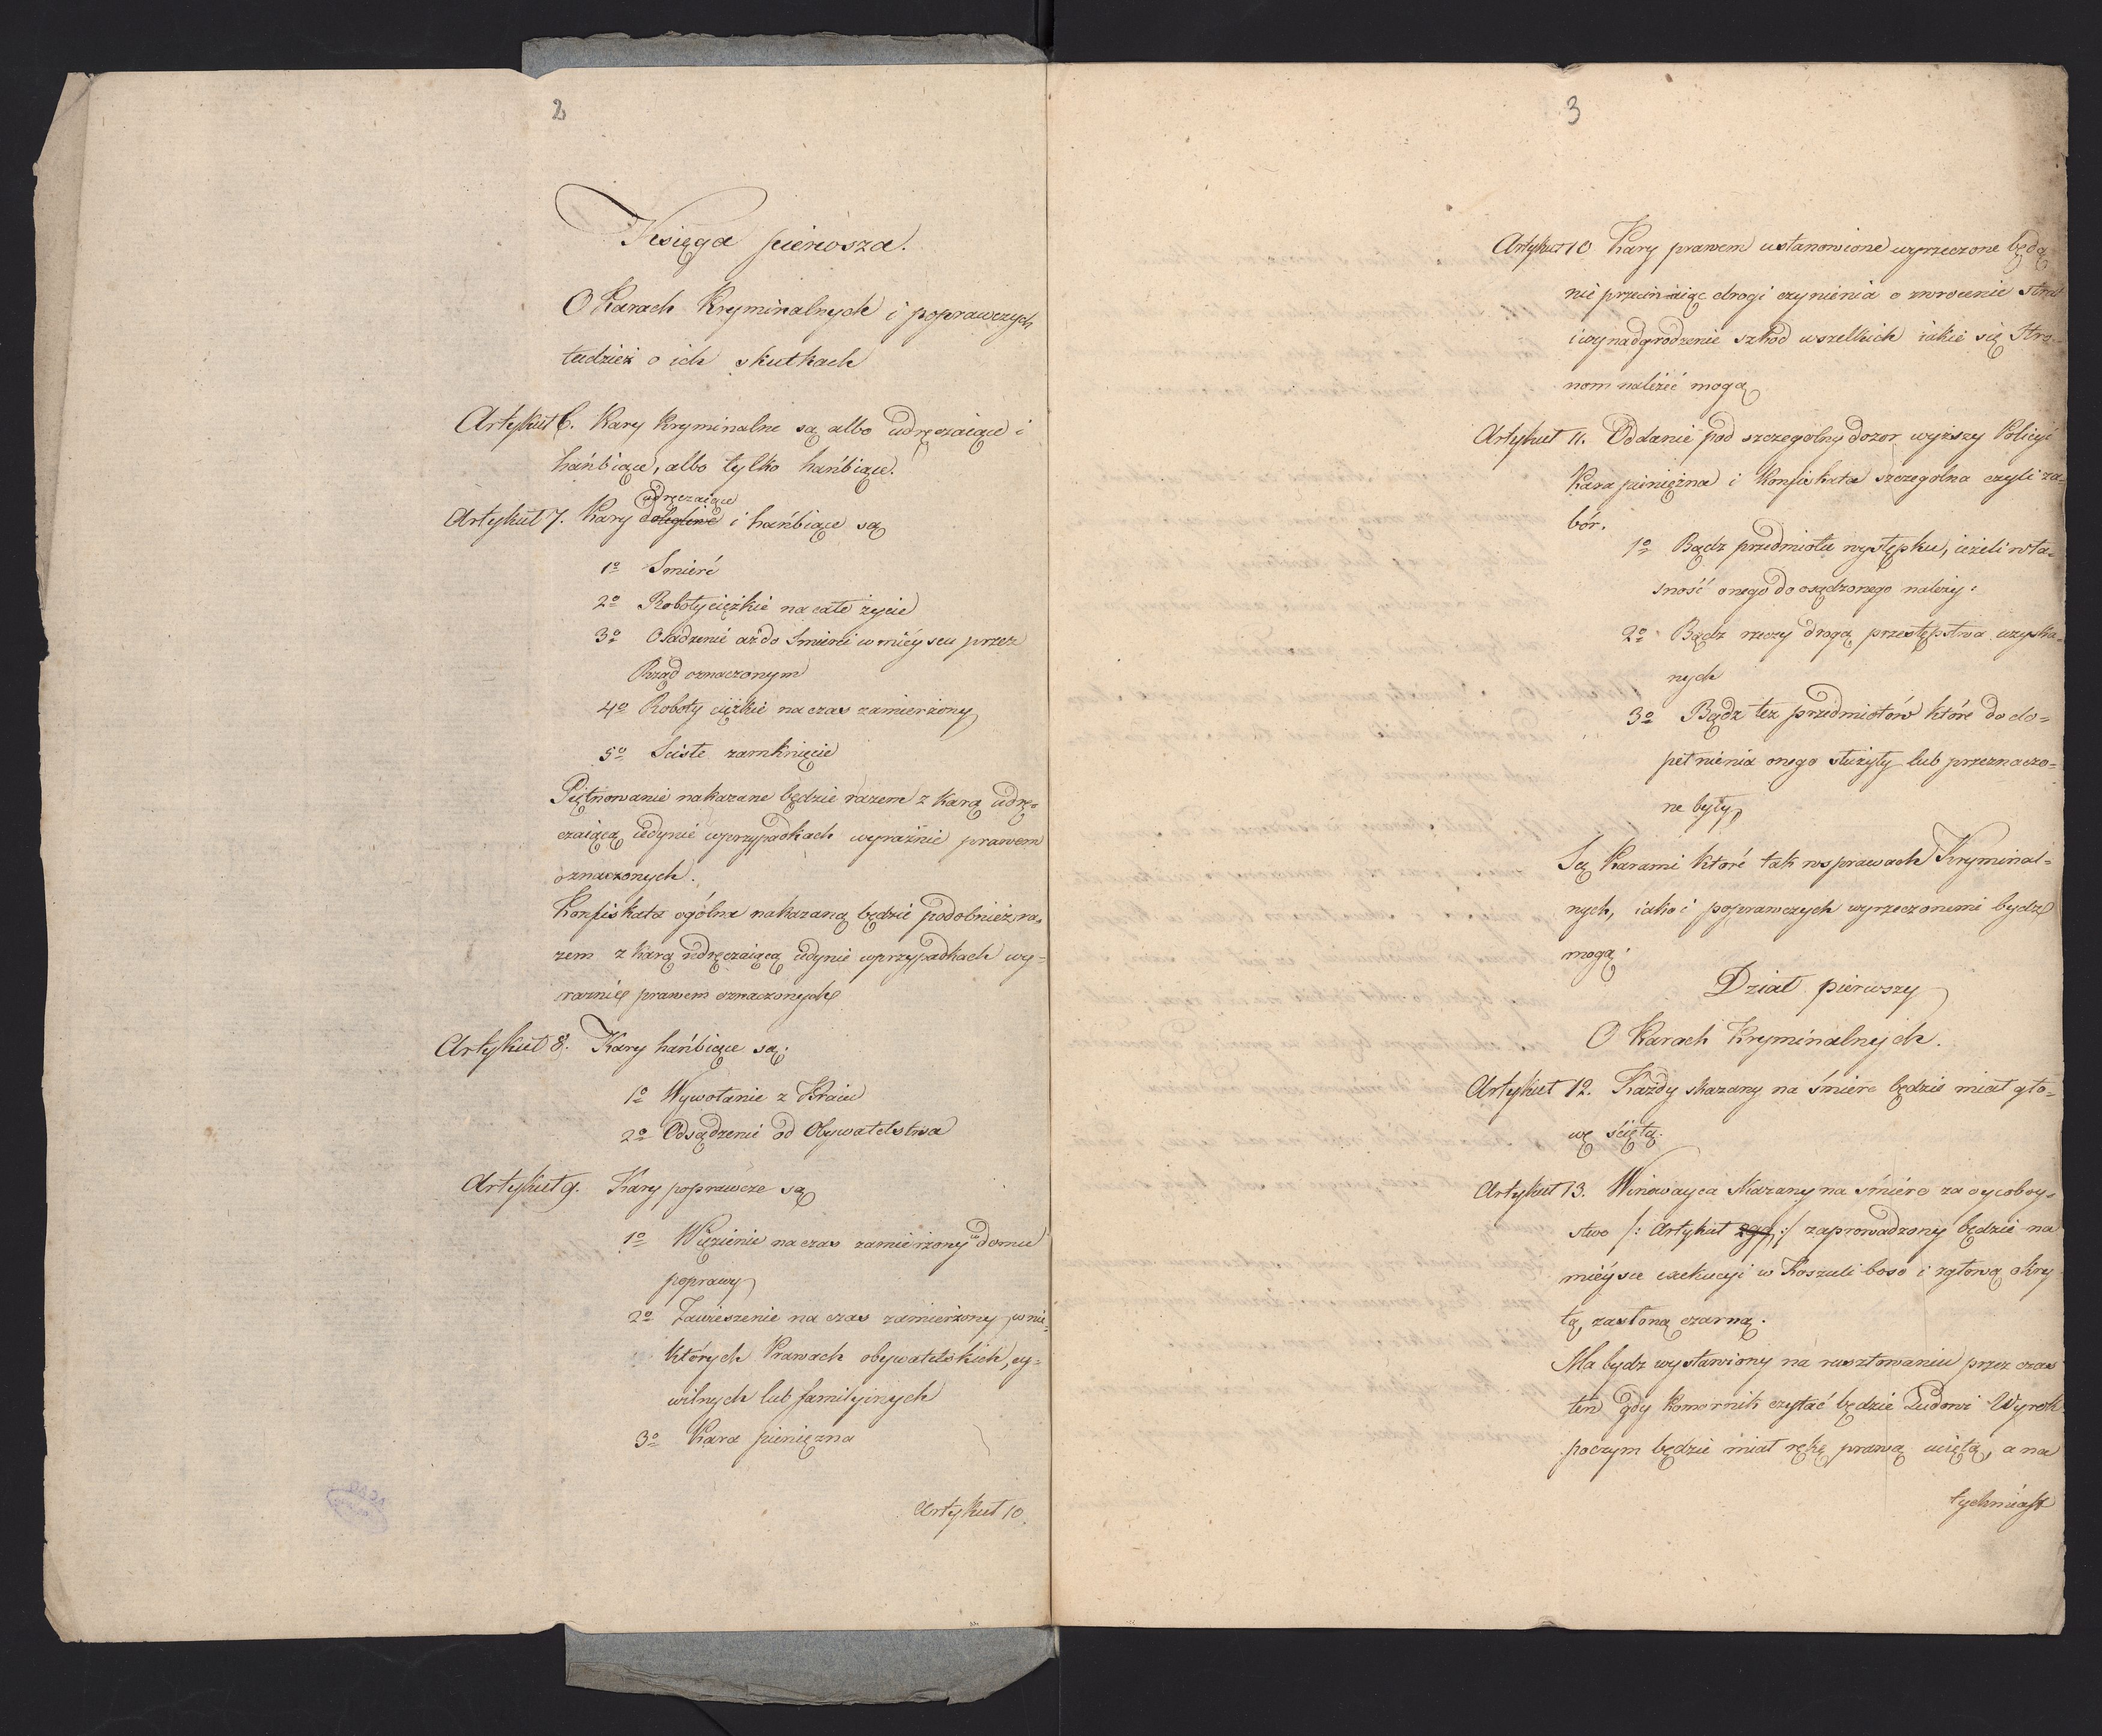 2
Księga pierwsza.
O Karach Kryminalnych i poprawczych
tudzież o ich skutkach
Artykuł 6. Kary Kryminalne są albo udręczaiące i
hańbiące, albo tylko hańbiące.
udręczaiące
Artykuł 7. Kary dolegliwe i hańbiące są
1o Smierć
2o Roboty ciężkie na całe życie
3o Osadzenie aż do Smierci w mieyscu przez
Rząd oznaczonym
4o Roboty ciężkie na czas zamierzony
5o Scisłe zamknięcie
Piętnowanie nakazane będzie razem z karą udrę-
czaiącą iedynie w przypadkach wyraźnie prawem
oznaczonych.
Konfiskata ogólna nakazaną będzie podobnież ra-
zem z karą udręczaiącą iedynie w przypadkach wy-
raznie prawem oznaczonych
Artykuł 8. Kary hańbiące są:
1o Wywołanie z Kraiu
2o Odsądzenie od Obywatelstwa
Artykuł 9. Kary poprawcze są
1o Więzienie na czas zamierzony w domu
poprawy
2o Zawieszenie na czas zamierzony w nie-
których Prawach obywatelskich, cy-
wilnych lub familyinych
3o Kara pieniężna
Artykuł 10.
3
Artykuł 10 Kary prawem ustanowione wyrzeczone będą
nie przecinaiąc drogi czynienia o zwrocenie strat
i wynadgrodzenie szkod wszelkich iakie się Stro-
nom należeć mogą
Artykuł 11. Oddanie pod szczególny dozor wyższy Policyi
Kara pieniężna i Konfiskata szczególna czyli za-
bór.
1o Bądz przedmiotu występku, ieżeli wła-
sność onego do osądzonego należy:
2o Bądz rzeczy drogą przestępstwa uzyska-
nych
3o Bądz też przedmiotów które do do-
pełnienia onego służyły lub przeznaczo-
ne były
Są Karami które tak w sprawach Kryminal-
nych, iako i poprawczych wyrzeczonemi bydz
mogą.
Dział pierwszy
O Karach Kryminalnych.
Artykuł 12. Każdy skazany na śmierc będzie miał gło-
wę ściętą.
Artykuł 13. Winowayca skazany na śmierc za oycoboy-
stwo /: Artykuł :/ zaprowadzony będzie na
mieysce exekucyi w Koszuli boso i z głową okry
tą, zasłoną czarną.
Ma bydz wystawiony na rusztowaniu przez czas
ten gdy Komornik czytać będzie Ludowi Wyrok
poczym będzie miał rękę prawą uciętą, a na
tychmiast